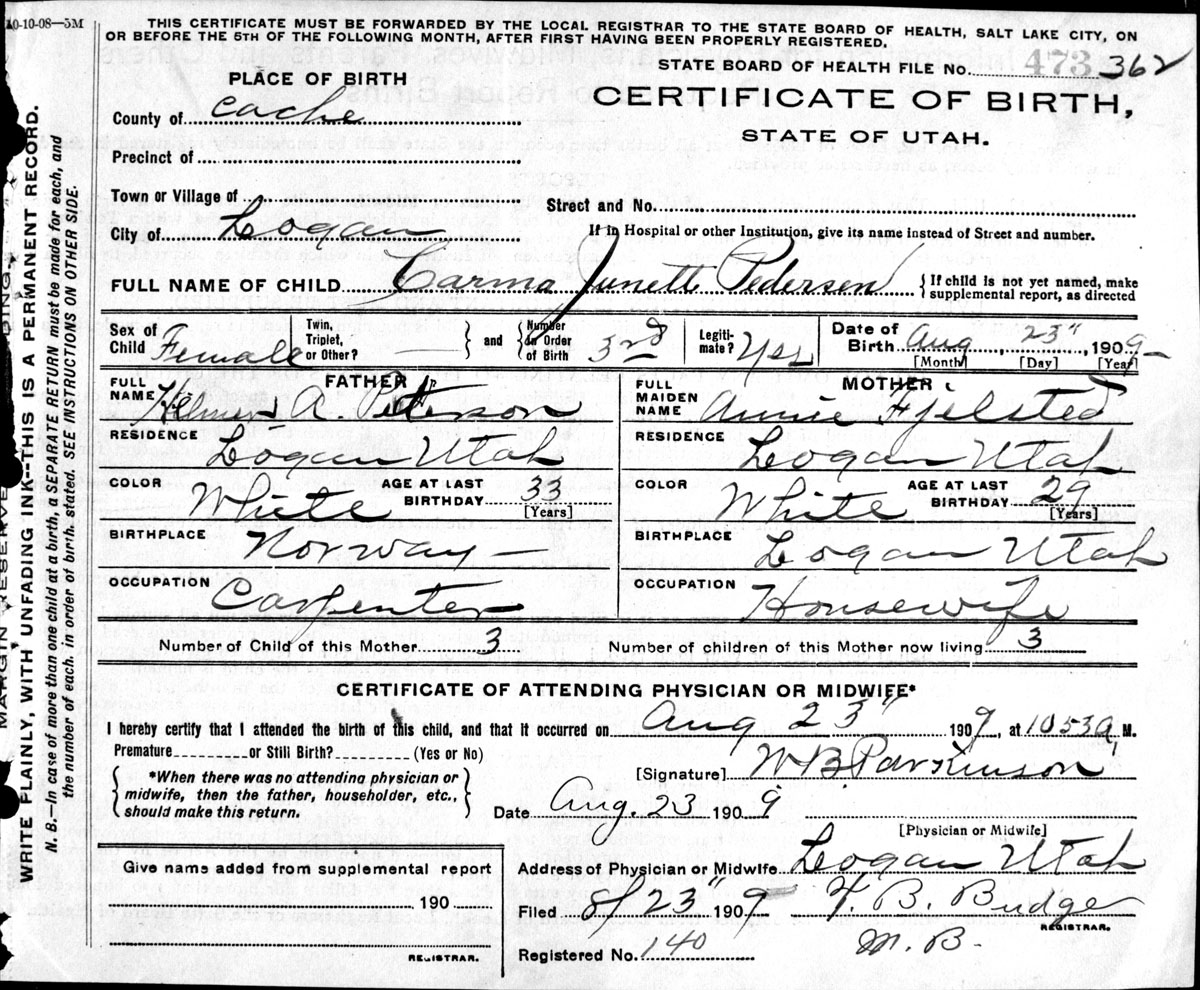 10-10-08—5M
THIS CERTIFICATE MUST BE FORWARDED BY THE LOCAL REGISTRAR TO THE STATE BOARD OF HEALTH, SALT LAKE CITY, ON
OR BEFORE THE 5TH OF THE FOLLOWING MONTH, AFTER FIRST HAVING BEEN PROPERLY REGISTERED.
STATE BOARD OF HEALTH FILE No. 473 362
PLACE OF BIRTH
CERTIFICATE OF BIRTH,
STATE OF UTAH.
County of Cache
Precinct of
Town or Village of
Street and No.
City of Logan
If in Hospital or other Institution, give its name instead of Street and number.
FULL NAME OF CHILD Carma Junett Pedersen { If child is not yet named, make
supplemental report, as directed
Sex of Child Female Twin, Triplet, or Other? — } and { Number in Order of Birth 3rd Legiti-mate? Yes Date of Birth Aug 23", 1909
[Month] [Day] [Year]
FATHER
FULL NAME Helmer A. Peterson
RESIDENCE Logan Utah
COLOR White AGE AT LAST BIRTHDAY 33 [Years]
BIRTHPLACE Norway —
OCCUPATION Carpenter
MOTHER
FULL MAIDEN NAME Annie Fjelsted
RESIDENCE Logan Utah
COLOR White AGE AT LAST BIRTHDAY 29 [Years]
BIRTHPLACE Logan Utah
OCCUPATION Housewife
Number of Child of this Mother 3 Number of children of this Mother now living 3
CERTIFICATE OF ATTENDING PHYSICIAN OR MIDWIFE*
I hereby certify that I attended the birth of this child, and that it occurred on Aug 23" 1909, at 1053a, M.
Premature or Still Birth? (Yes or No)
{ *When there was no attending physician or
midwife, then the father, householder, etc.,
should make this return. }
[Signature] W B Parkinson
Date Aug. 23 1909
[Physician or Midwife]
Give name added from supplemental report
190
REGISTRAR.
Address of Physician or Midwife Logan Utah
Filed 8/23" 1909 F. B. Budge
REGISTRAR.
Registered No. 140 M. B.
MARGIN RESERVE
BING.
WRITE PLAINLY, WITH UNFADING INK--THIS IS A PERMANENT RECORD.
N. B.—In case of more than one child at a birth, a SEPARATE RETURN must be made for each, and
the number of each, in order of birth, stated. SEE INSTRUCTIONS ON OTHER SIDE.